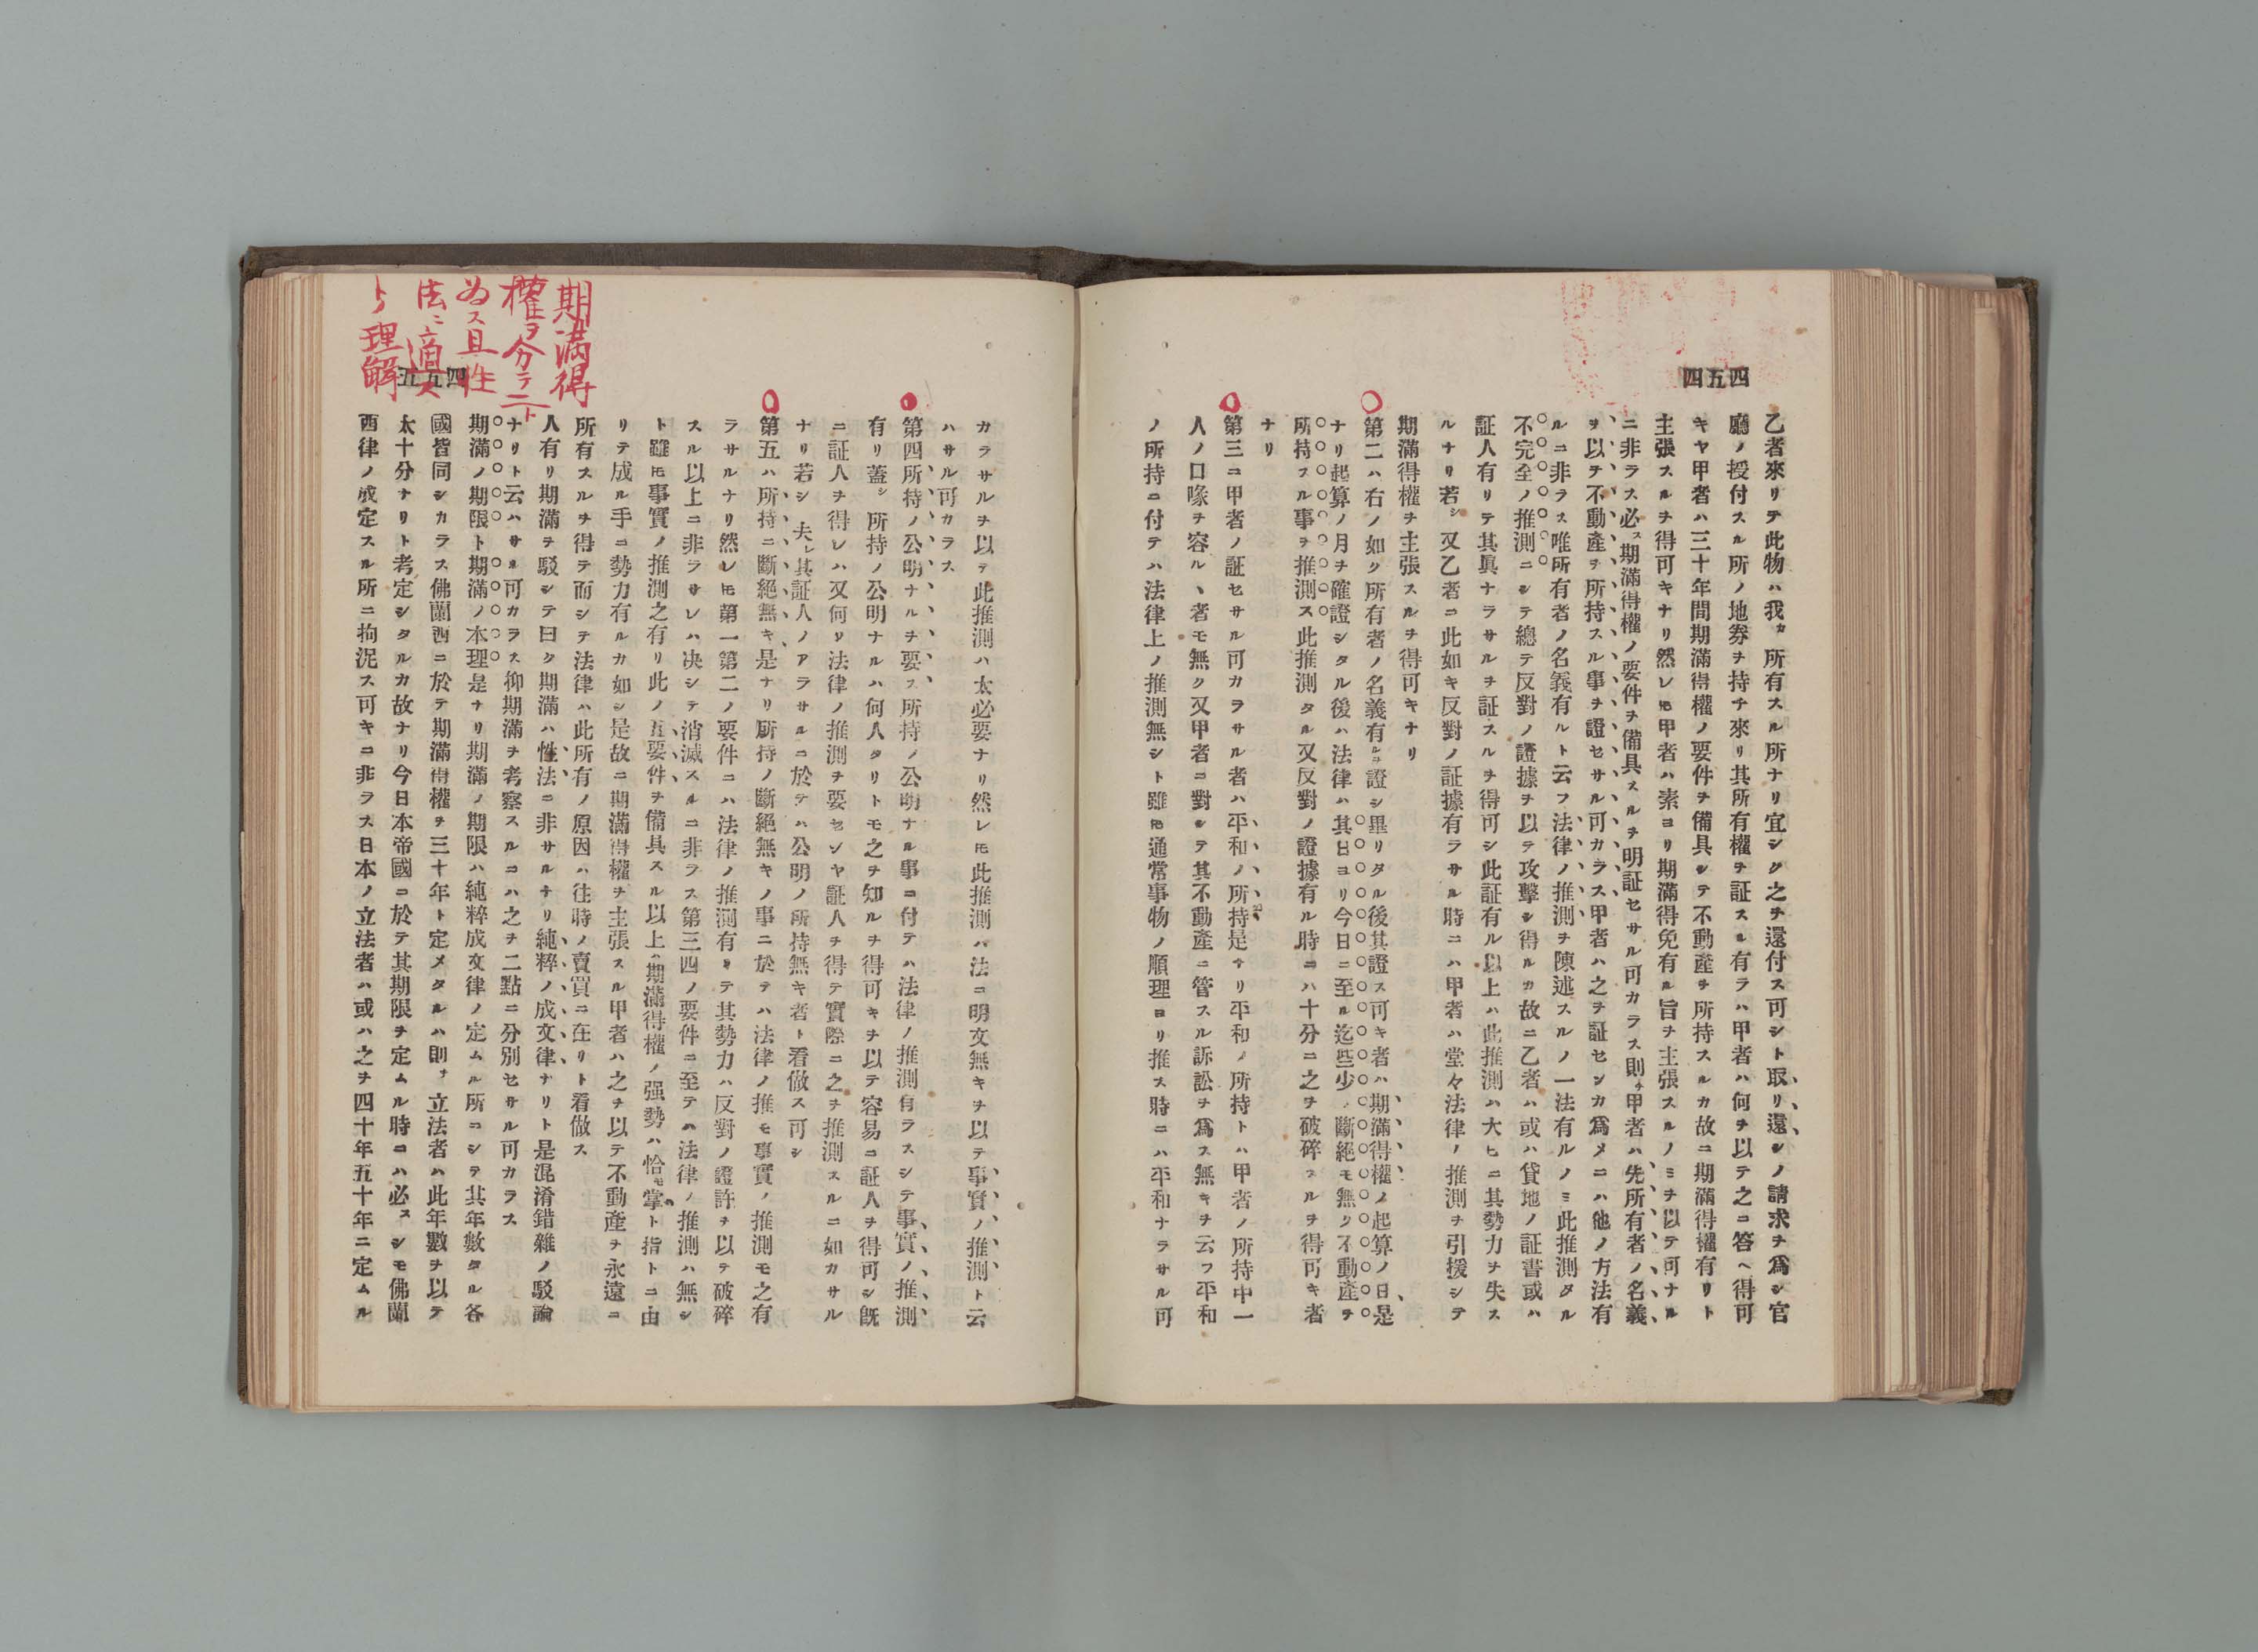 四五四
乙者來リテ此物ハ我カ所有スル所ナリ宜シク之ヲ還付ス可シト取リ還シノ請求ヲ爲シ官
廳ノ授付スル所ノ地券ヲ持チ來リ其所有權ヲ証スル有ラハ甲者ハ何ヲ以テ之ニ答ヘ得可
キヤ甲者ハ三十年間期滿得權ノ要件ヲ備具シテ不動產ヲ所持スルカ故ニ期滿得權有リト
主張スルヲ得可キナリ然レ𪜈甲者ハ素ヨリ期滿得免有ル旨ヲ主張スルノミヲ以テ可ナル
ニ非ラス必ス期滿得權ノ要件ヲ備具スルヲ明証セサル可カラス則チ甲者ハ先所有者ノ名義
ヲ以テ不動產ヲ所持スル事ヲ證セサル可カラス甲者ハ之ヲ証センカ爲メニハ他ノ方法有
ルニ非ラス唯所有者ノ名義有ルト云フ法律ノ推測ヲ陳述スルノ一法有ルノミ此推測タル
不完全ノ推測ニシテ總テ反對ノ證據ヲ以テ攻擊シ得ルカ故ニ乙者ハ或ハ貸地ノ証書或ハ
証人有リテ其眞ナラサルヲ証スルヲ得可シ此証有ル以上ハ此推測ハ大ヒニ其勢力ヲ失ス
ルナリ若シ又乙者ニ此如キ反對ノ証據有ラサル時ニハ甲者ハ堂々法律ノ推測ヲ引援シテ
期滿得權ヲ主張スルヲ得可キナリ
第二ハ右ノ如ク所有者ノ名義有ルヿ證シ畢リタル後其證ス可キ者ハ期滿得權ノ起算ノ日是
ナリ起算ノ月ヲ確證シタル後ハ法律ハ其日ヨリ今日ニ至ル迄些少ノ斷絕モ無ク不動產ヲ
所持スル事ヲ推測ス此推測タル又反對ノ證據有ル時ニハ十分ニ之ヲ破碎スルヲ得可キ者
ナリ
第三ニ甲者ノ証セサル可カラサル者ハ平和ノ所持是ナリ平和ノ所持トハ甲者ノ所持中一
人ノ口喙ヲ容ルヽ者モ無ク又甲者ニ對シテ其不動產ニ管スル訴訟ヲ爲ス無キヲ云フ平和
ノ所持ニ付テハ法律上ノ推測無シト雖𪜈通常事物ノ順理ヨリ推ス時ニハ平和ナラサル可
期滿得
權ヲ分テ二ト
為ス且性
法ニ適ス
トノ理解
四五五
カラサルヲ以テ此推測ハ太必要ナリ然レ𪜈此推測ハ法ニ明文無キヲ以テ事實ノ推測ト云
ハサル可カラス
第四所持ノ公明ナルヲ要ス所持ノ公明ナル事ニ付テハ法律ノ推測有ラスシテ事實ノ推測
有リ蓋シ所持ノ公明ナルハ何人タリトモ之ヲ知ルヲ得可キヲ以テ容易ニ証人ヲ得可シ既
ニ証人ヲ得レハ又何リ法律ノ推測ヲ要センヤ証人ヲ得テ實際ニ之ヲ推測スルニ如カサル
ナリ若シ夫レ其証人ノアラサルニ於テハ公明ノ所持無キ者ト看做ス可シ
第五ハ所持ニ斷絕無キ是ナリ所持ノ斷絕無キノ事ニ於テハ法律ノ推モ事實ノ推測モ之有
ラサルナリ然レ𪜈第一第二ノ要件ニハ法律ノ推測有リテ其勢力ハ反對ノ證許ヲ以テ破碎
スル以上ニ非ラサレハ決シテ消滅スルニ非ラス第三四ノ要件ニ至テハ法律ノ推測ハ無シ
ト雖𪜈事實ノ推測之有リ此ノ五要件ヲ備具スル以上ハ期滿得權ノ强勢ハ恰モ掌ト指トニ由
リテ成ル手ニ勢力有ルカ如シ是故ニ期滿得權ヲ主張スル甲者ハ之ヲ以テ不動產ヲ永遠ニ
所有スルヲ得テ而シテ法律ハ此所有ノ原因ハ往時ノ賣買ニ在リト看做ス
人有リ期滿ヲ駁シテ曰ク期滿ハ性法ニ非サルナリ純粹ノ成文律ナリト是混淆錯雜ノ駁論
ナリト云ハサル可カラス抑期滿ヲ考察スルニハ之ヲ二點ニ分別セサル可カラス
期滿ノ期限ト期滿ノ本理是ナリ期滿ノ期限ハ純粹成文律ノ定ムル所ニシテ其年數タル各
國皆同シカラス佛蘭西ニ於テ期滿得權ヲ三十年ト定メタルハ則チ立法者ハ此年數ヲ以テ
太十分ナリト考定シタルカ故ナリ今日本帝國ニ於テ其期限ヲ定ムル時ニハ必スシモ佛蘭
西律ノ成定スル所ニ拘泥ス可キニ非ラス日本ノ立法者ハ或ハ之ヲ四十年五十年ニ定ムル